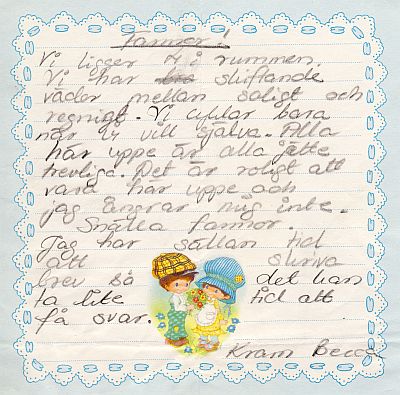 Farmor!
Vi ligger 7 i rummen.
Vi har skiftande
väder mellan soligt och
regnigt. Vi äter bara
när vi vill själva. Alla
här uppe är alla jätte
trevliga. Det är roligt att
vara här uppe och
jag ångrar mig inte.
Snälla farmor.
Jag har sällan tid
att skriva
brev så det kan
ta lite tid att
få svar.
Kram Becca